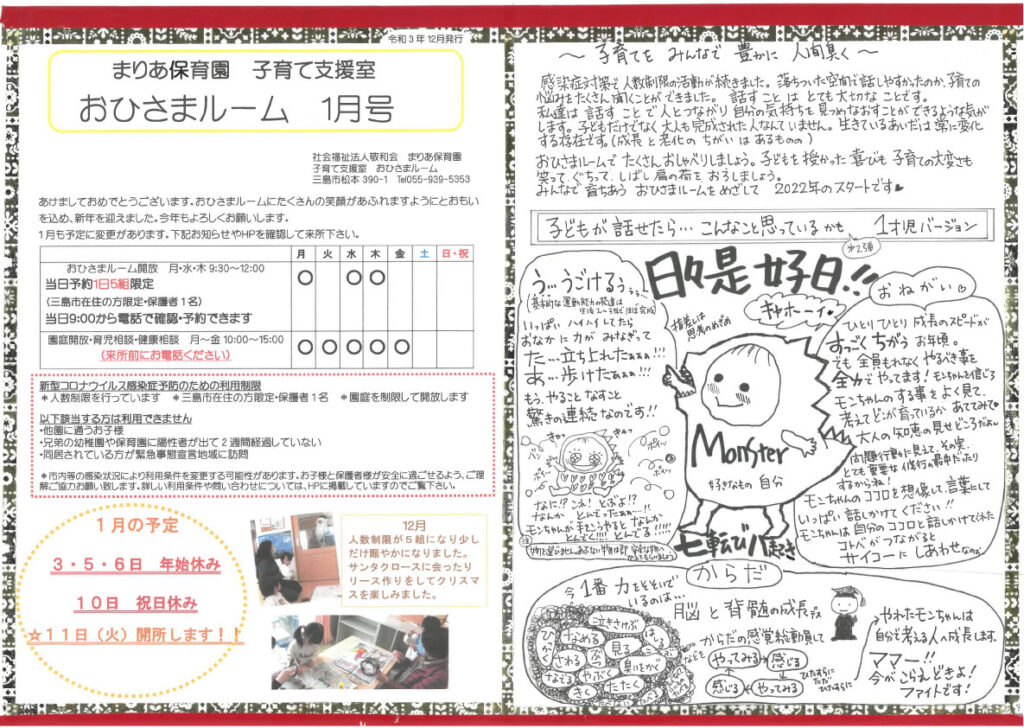 令和3年12月発行
まりあ保育園 子育て支援室
おひさまルーム 1月号
社会福祉法人敬和会 まりあ保育園
子育て支援室 おひさまルーム
三島市松本390-1 Tel055-939-5353
あけましておめでとうございます。おひさまルームにたくさんの笑顔があふれますようにとおもい
を込め、新年を迎えました。今年もよろしくお願いします。
1月も予定に変更があります。下記お知らせやHPを確認して来所下さい。
月 火 水 木 金 土 日・祝
おひさまルーム開放 月・水・木 9:30～12:00
当日予約1日5組限定
(三島市在住の方限定・保護者1名)
当日9:00から電話で確認・予約できます
○ ○ ○
園庭開放・育児相談・健康相談 月～金 10:00～15:00
(来所前にお電話ください)
○ ○ ○ ○ ○
新型コロナウイルス感染症予防のための利用制限
＊人数制限を行っています ＊三島市在住の方限定・保護者1名 ＊園庭を制限して開放します
以下該当する方は利用できません
・他園に通うお子様
・兄弟の幼稚園や保育園に陽性者が出て2週間経過していない
・同居されている方が緊急事態宣言地域に訪問
＊市内等の感染状況により利用条件を変更する可能性があります。お子様と保護者様が安全に過ごせるよう、ご理
解ご協力お願い致します。詳しい利用条件や問い合わせについては、HPに掲載していますのでご覧下さい。
1月の予定
3・5・6日 年始休み
10日 祝日休み
☆11日(火)開所します！！
12月
人数制限が5組になり少し
だけ賑やかになりました。
サンタクロースに会ったり
リース作りをしてクリスマ
スを楽しみました。
～ 子育てを みんなで 豊かに 人間臭く ～
感染症対策で人数制限の活動が続きました。落ちついた空間で話しやすかったのか、子育ての
悩みをたくさん聞くことができました。 話すことは とても大切なことです。
私達は 話すことで人とつながり 自分の気持ちを見つめなおすことができるような気が
します。子どもだけでなく大人も完成された人なんていません。生きているあいだは常に変化
する存在です。(成長と老化のちがいはあるものの)
おひさまルームで たくさんおしゃべりしましょう。子どもを授かった喜びも 子育ての大変さも
笑って、ぐちって、しばし肩の荷をおろしましょう。
みんなで育ちあう おひさまルームをめざして 2022年のスタートです♥
子どもが話せたら… こんなこと思っているかも 1才児バージョン
第2弾
日々是好日!!
う…うごけるぅ
いっぱい ハイハイしてたら
おなかに力が みなぎって
た…立ち上れたぁぁぁ!!!
あ…歩けたぁぁぁ!!!
もう、やること なすこと
驚きの連続 なのです!!
キャホーーイ
指差しは
思考のめざめ
Monster
好きなもの 自分
七転び八起き
おねがい♡
ひとりひとり 成長のスピードが
すっごくちがう お年頃。
でも 全員もれなく やるべき事を
全力で やってます! モンちゃんを信じろ
モンちゃんのする事を よく見て、
考えて どこが育っているか あててみて♥
大人の知恵の見せどころだよ～
問題行動に見えて、その実、
とても重要な 修行の最中だったり
するからね!
モンちゃんのココロを想像して、言葉にして
いっぱい 話しかけてください!!
モンちゃんは 自分のココロと話しかけてくれた
コトバがつながると
サイコーに しあわせなのだ
なに!? こえ、とぶよ!?
なんか とんでったぁぁ!!
モンちゃんが 手というやると なんか
とんでく!!!! とんでる!!!!
からだ
今1番 力をそそいで
いるのは…
脳 と 背髄の成長
からだの感覚総動員して
泣きさけぶ
なめる
ひっかく
さわる
見る
はしる
臭いをかぐ
なでる
やぶく
きく
たたく
など
やってみる→感じる
感じる←やってみる
ひたすらに
ただ
ひたすらに
やがたモンちゃんは
自分で考える人へ成長します。
ママー!!
今がこらえどきよ!
ファイトです!